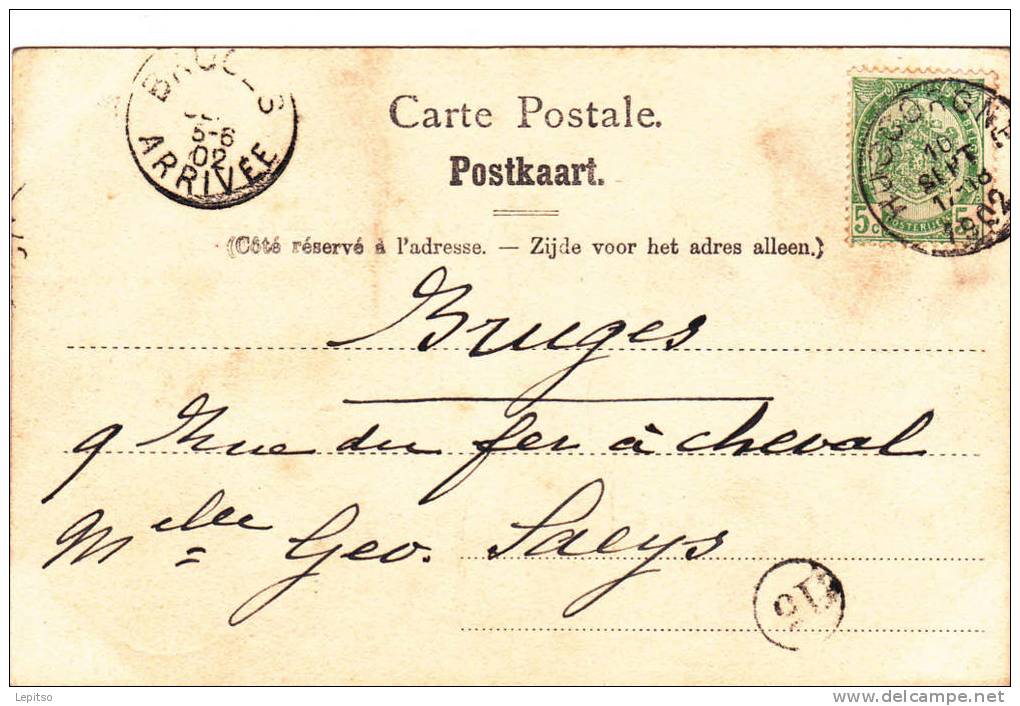 ARRIVÉE
5-6
02
Carte Postale.
Postkaart.
(Côté réservé à l'adresse. — Zijde voor het adres alleen.)
10
SEPT
1902
5c
Bruges
9 Rue du fer à cheval
Mlle Geo. Saeys
Lepitso
www.delcampe.net